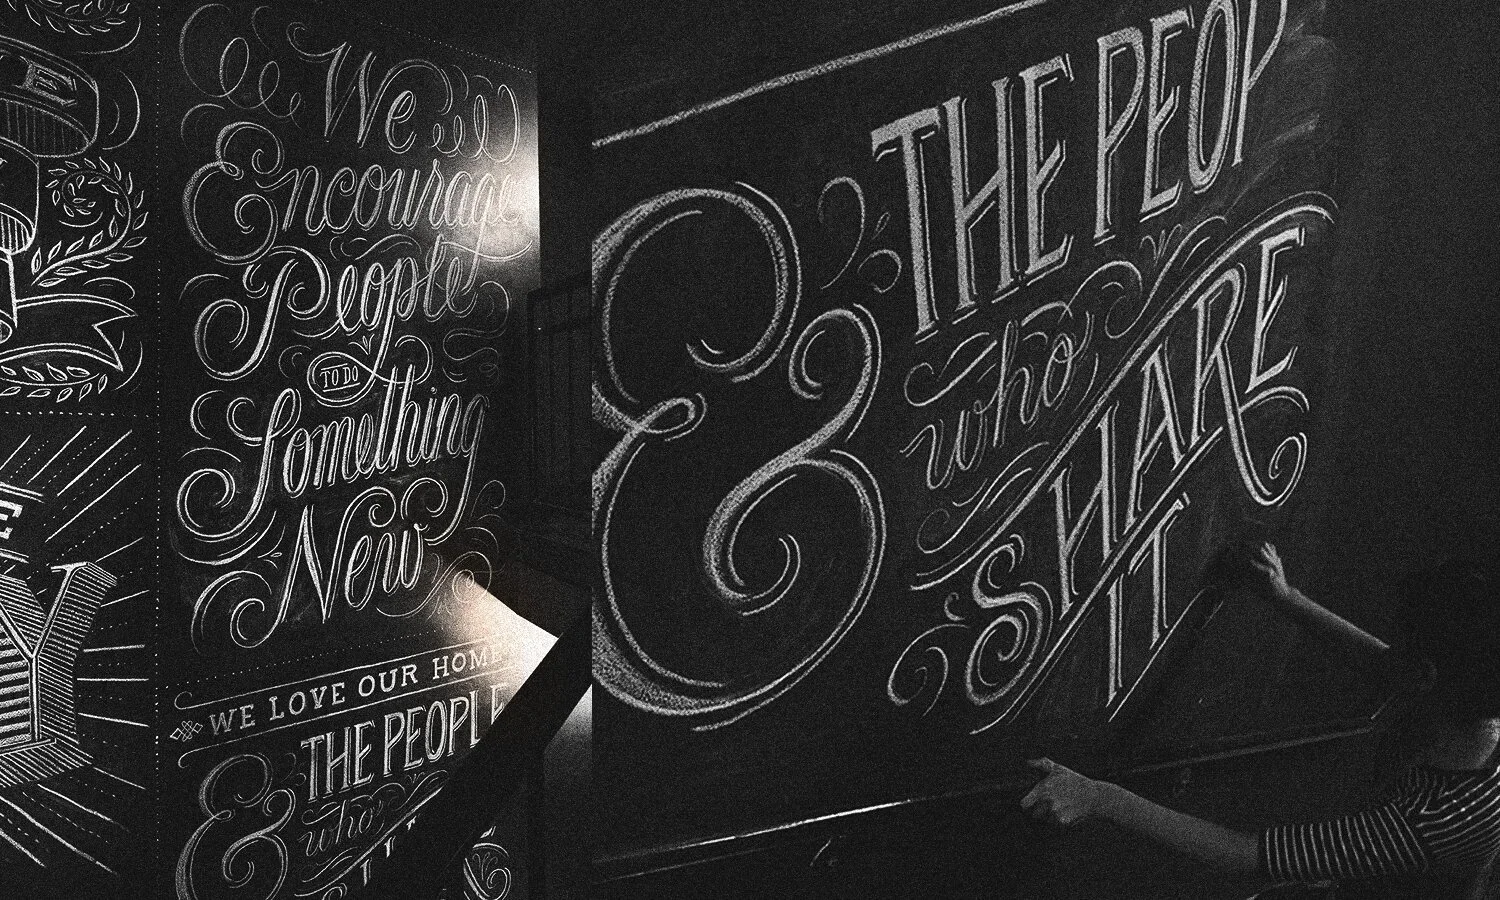 E
E
Y
We
Encourage
People
TO DO
Something
New
WE LOVE OUR HOME
& THE PEOPLE
who
& THE PEOP
who
SHARE
IT